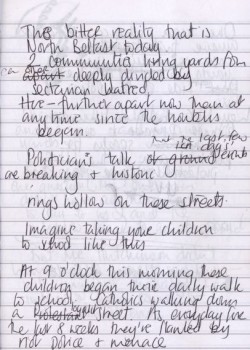 This bitter reality that is
North Belfast today
2 communities living yards from
deeply divided by
sectarian hatred
Here - further apart now than at
any time since the troubles
began.
in the last few
days
Politician's talk of ground events
are breaking + historic
rings hollow on these streets.
Imagine taking your children
to school like this
At 9 o'clock this morning these
children began their daily walk
to school, Catholics walking down
a Protestant street. As everyday for
the last 8 weeks they're flanked by
riot police + menace